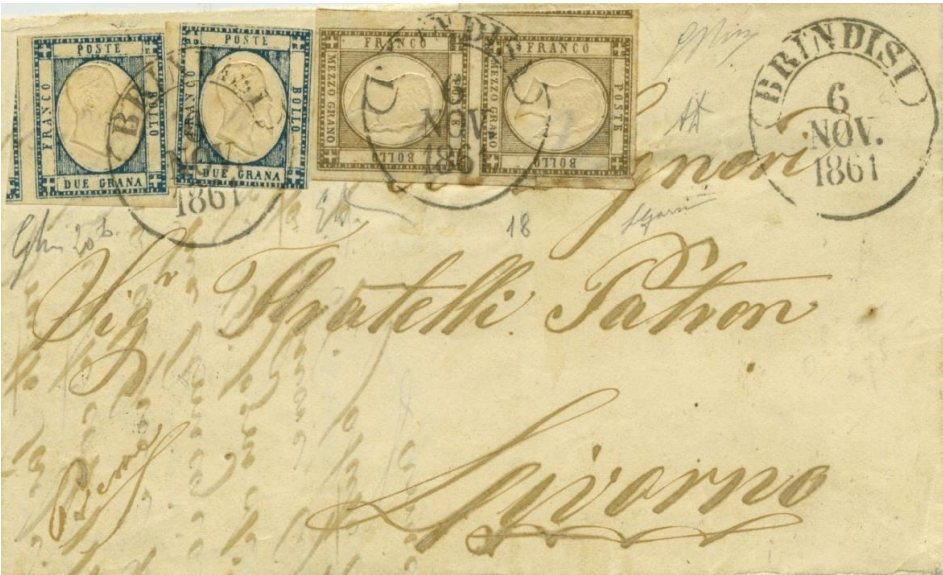 POSTE
FRANCO
BOLLO
DUE GRANA
POSTE
FRANCO
BOLLO
DUE GRANA
FRANCO
MEZZO GRANO
BOLLO
FRANCO
MEZZO GRANO
POSTE
BOLLO
BRINDISI
1861
6
NOV.
1861
BRINDISI
6
NOV.
1861
Signori
18
Sigr Fratelli Patron
Livorno